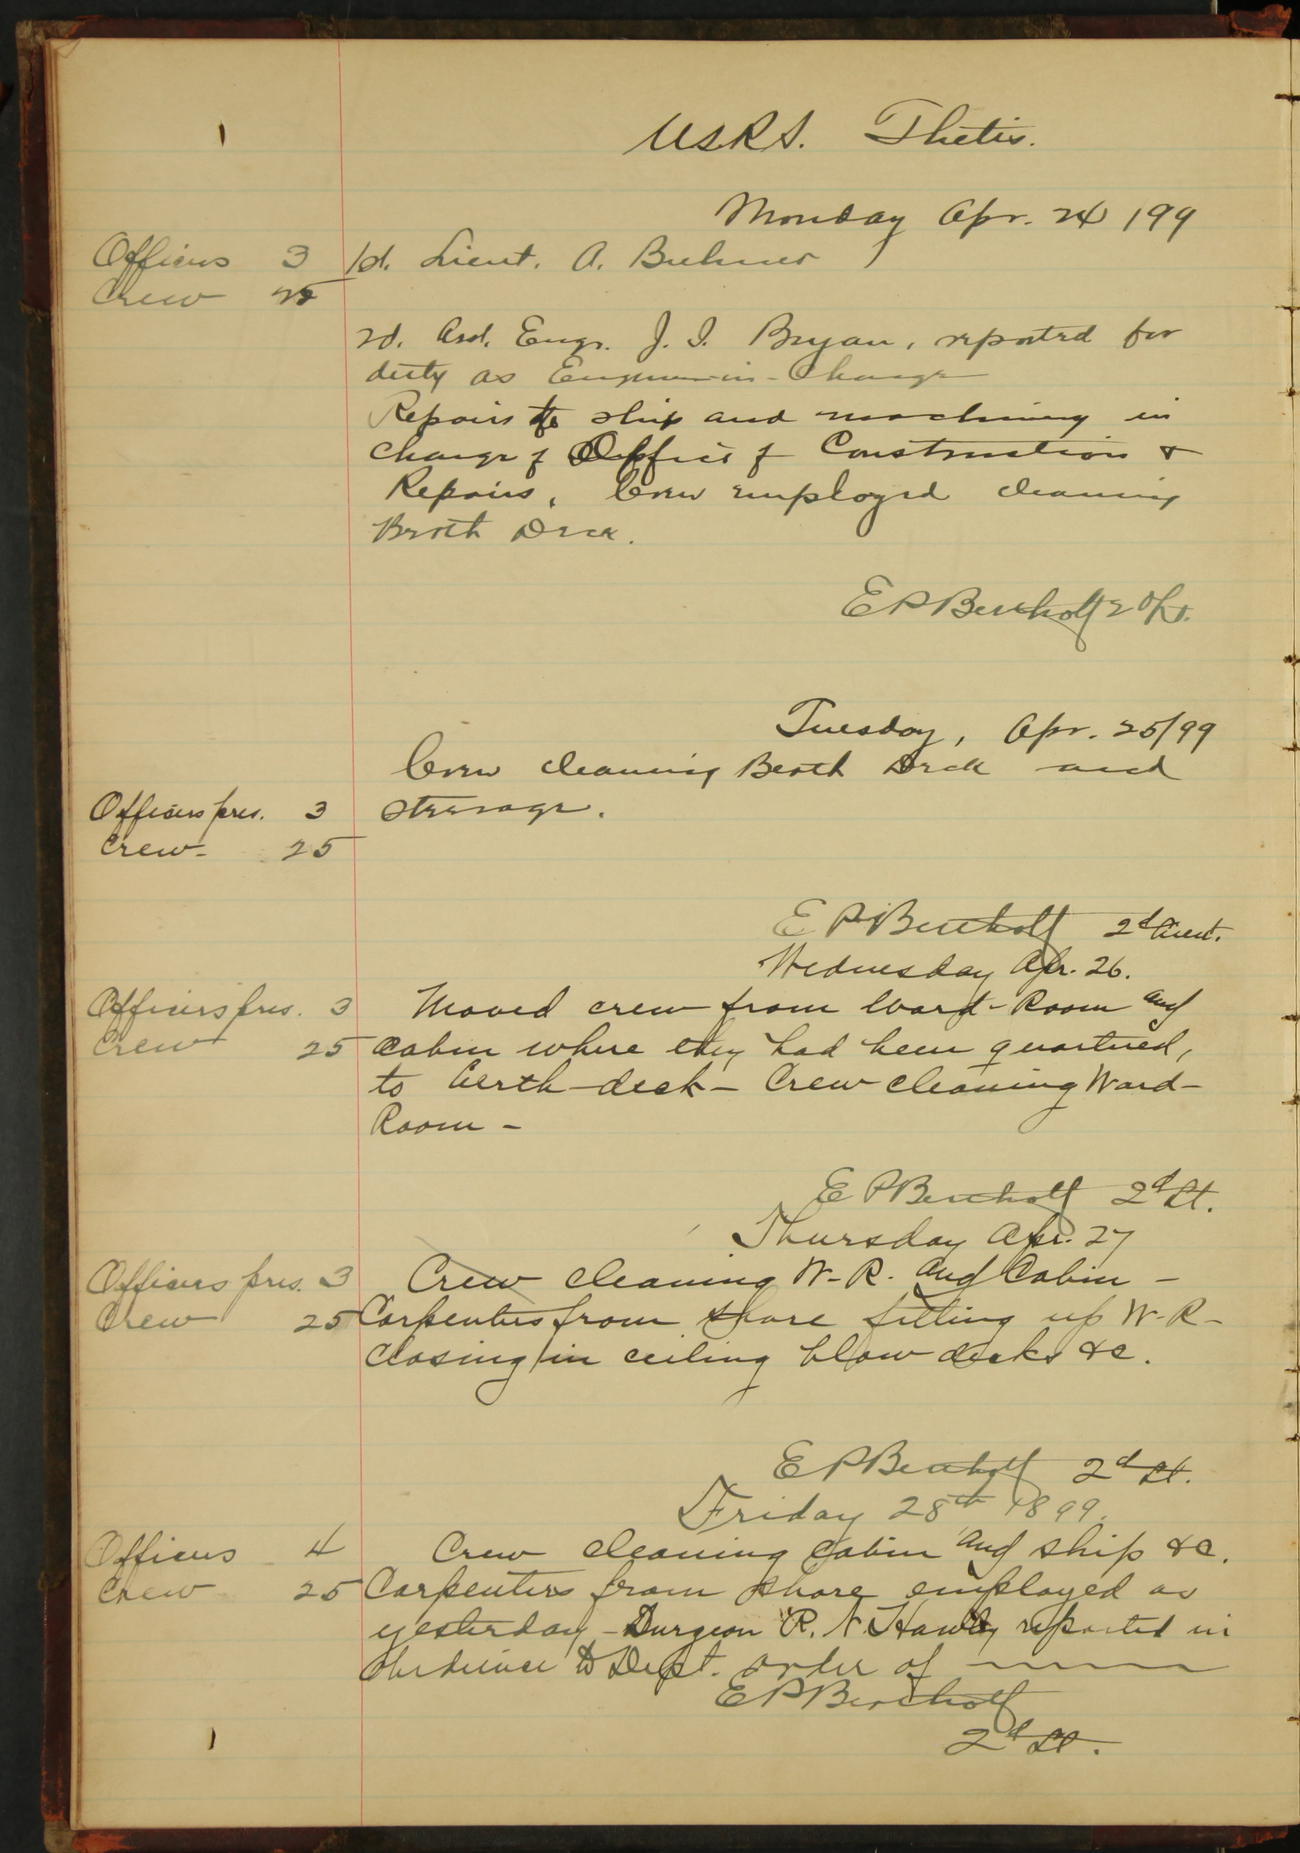 USRS. Thetis.
Monday Apr. 24 /99
Officers 3 1st. Lieut. A. Buhner
Crew 25
2d. Asst. Engr. J. I. Bryan, reported for
duty as Engineer-in-Charge
Repairs to ship and machinery in
charge of Office of Construction &
Repairs. Crew employed cleaning
Berth Deck.
E P Bertholf 2d Lt.
Tuesday, Apr. 25/99
Crew cleaning Berth Deck and
steerage.
Officers pres. 3
Crew 25
E P Bertholf 2d Lieut.
Wednesday Apr. 26.
Officers pres. 3 Moved crew from Ward-Room and
Crew 25 Cabin where they had been quartered,
to berth-deck - Crew cleaning Ward-
Room -
E P Bertholf 2d Lt.
Thursday Apr. 27
Officers pres. 3 Crew cleaning W-R. and Cabin -
Crew 25 Carpenters from shore fitting up W-R-
closing in ceiling below decks &c.
E P Bertholf 2d Lt.
Friday 28th 1899.
Officers 4 Crew cleaning cabin and ship &c.
Crew 25 Carpenters from shore employed as
yesterday - Surgeon R. N. Hawley reported in
obedience to Dept. order of
E P Bertholf
2d Lt.